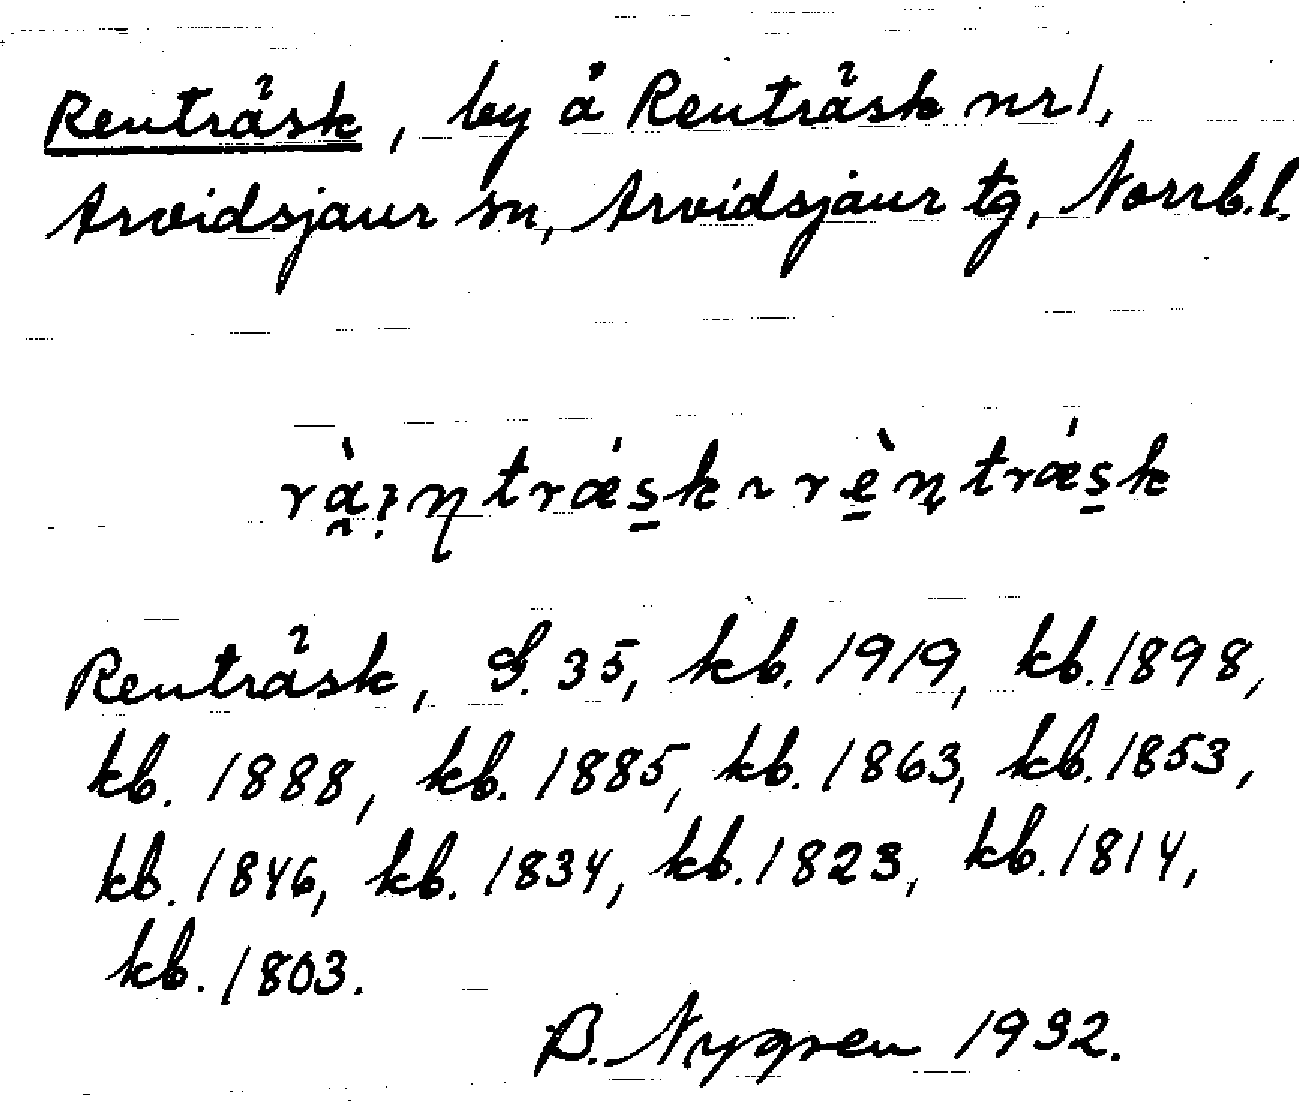 Renträsk, by å Renträsk nr 1,
Arvidsjaur sn, Arvidsjaur tg, Norrb.l.
Renträsk, S. 35, kb. 1919, kb. 1898,
kb. 1888, kb. 1885, kb. 1863, kb. 1853,
kb. 1846, kb. 1834, kb. 1823, kb. 1814,
kb. 1803.
B. Nygren 1932.